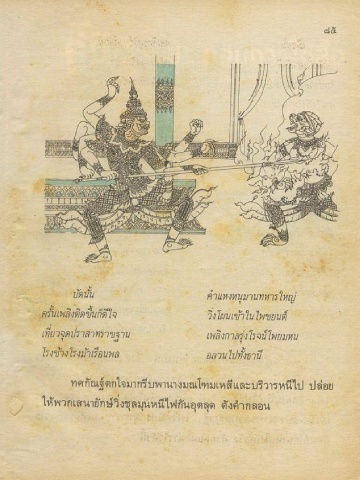 ๘๕
บัดนั้น คำแหงหนุมานทหารใหญ่
ครั้นเพลิงติดขึ้นก็ดีใจ วิ่งโผนเข้าในไพชยนต์
เที่ยวจุดปราสาทราชฐาน เพลิงกาลรุ่งโรจน์โพยมหน
โรงช้างโรงม้าเรือนพล อลวนไปทั้งธานี
ทศกัณฐ์ตกใจมากรีบพานางมณโฑมเหสีและบริวารหนีไป ปล่อย
ให้พวกเสนายักษ์วิ่งชุลมุนหนีไฟกันอุตลุด ดังคำกลอน